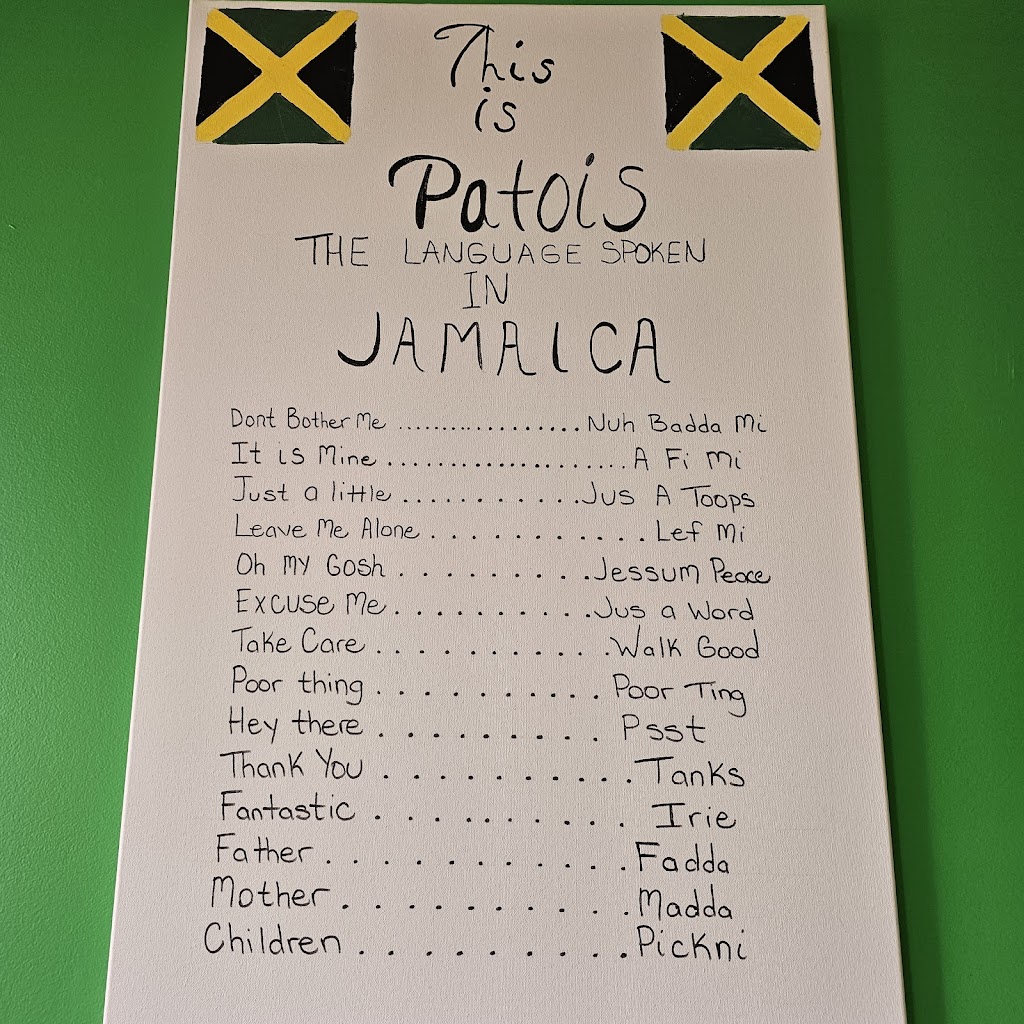 This
is
Patois
THE LANGUAGE SPOKEN
IN
JAMAICA
Dont Bother Me .................. Nuh Badda Mi
It is Mine ...................... A Fi Mi
Just a little ............ Jus A Toops
Leave Me Alone ............ Lef Mi
Oh my Gosh .......... Jessum Peace
Excuse Me ........... Jus a Word
Take Care ............ Walk Good
Poor thing .......... Poor Ting
Hey there ......... Psst
Thank You ........... Tanks
Fantastic .......... Irie
Father ........... Fadda
Mother .......... Madda
Children .......... Pickni